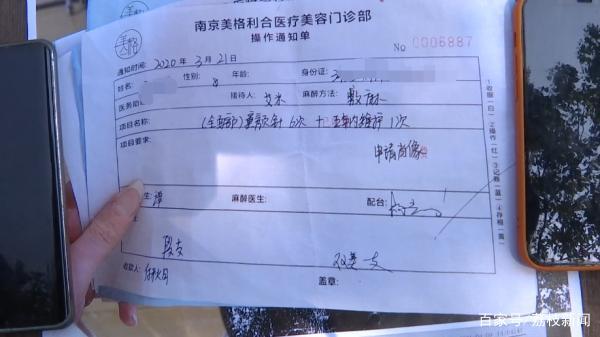 美格
南京美格利合医疗美容门诊部
操作通知单
No 0006887
通知时间: 2020 年 3 月 21 日
姓名: 性别: 年龄: 身份证:
医务助 接待人: 艾米 麻醉方法: 敷麻
项目名称: (全面部)童颜针 6次 + 内维护 1次
项目要求:
申请肖像
生: 谭 麻醉医生: 配台:
双美一支
收款人: 盖章:
①收据(白) ②操作(红) ③记账(蓝) ④存根(黄)
百家号/荔枝新闻